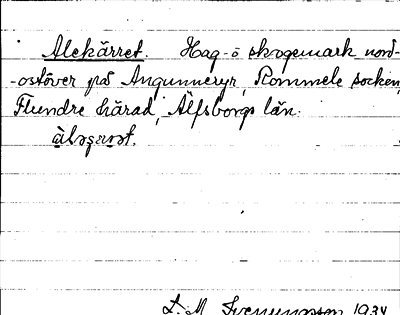 Alekärret. Hag- o skogsmark nord-
-ostöver på Angunneryr, Rommele socken,
Flundre härad, Älfsborgs län.
S. M. Svenungsson 1934